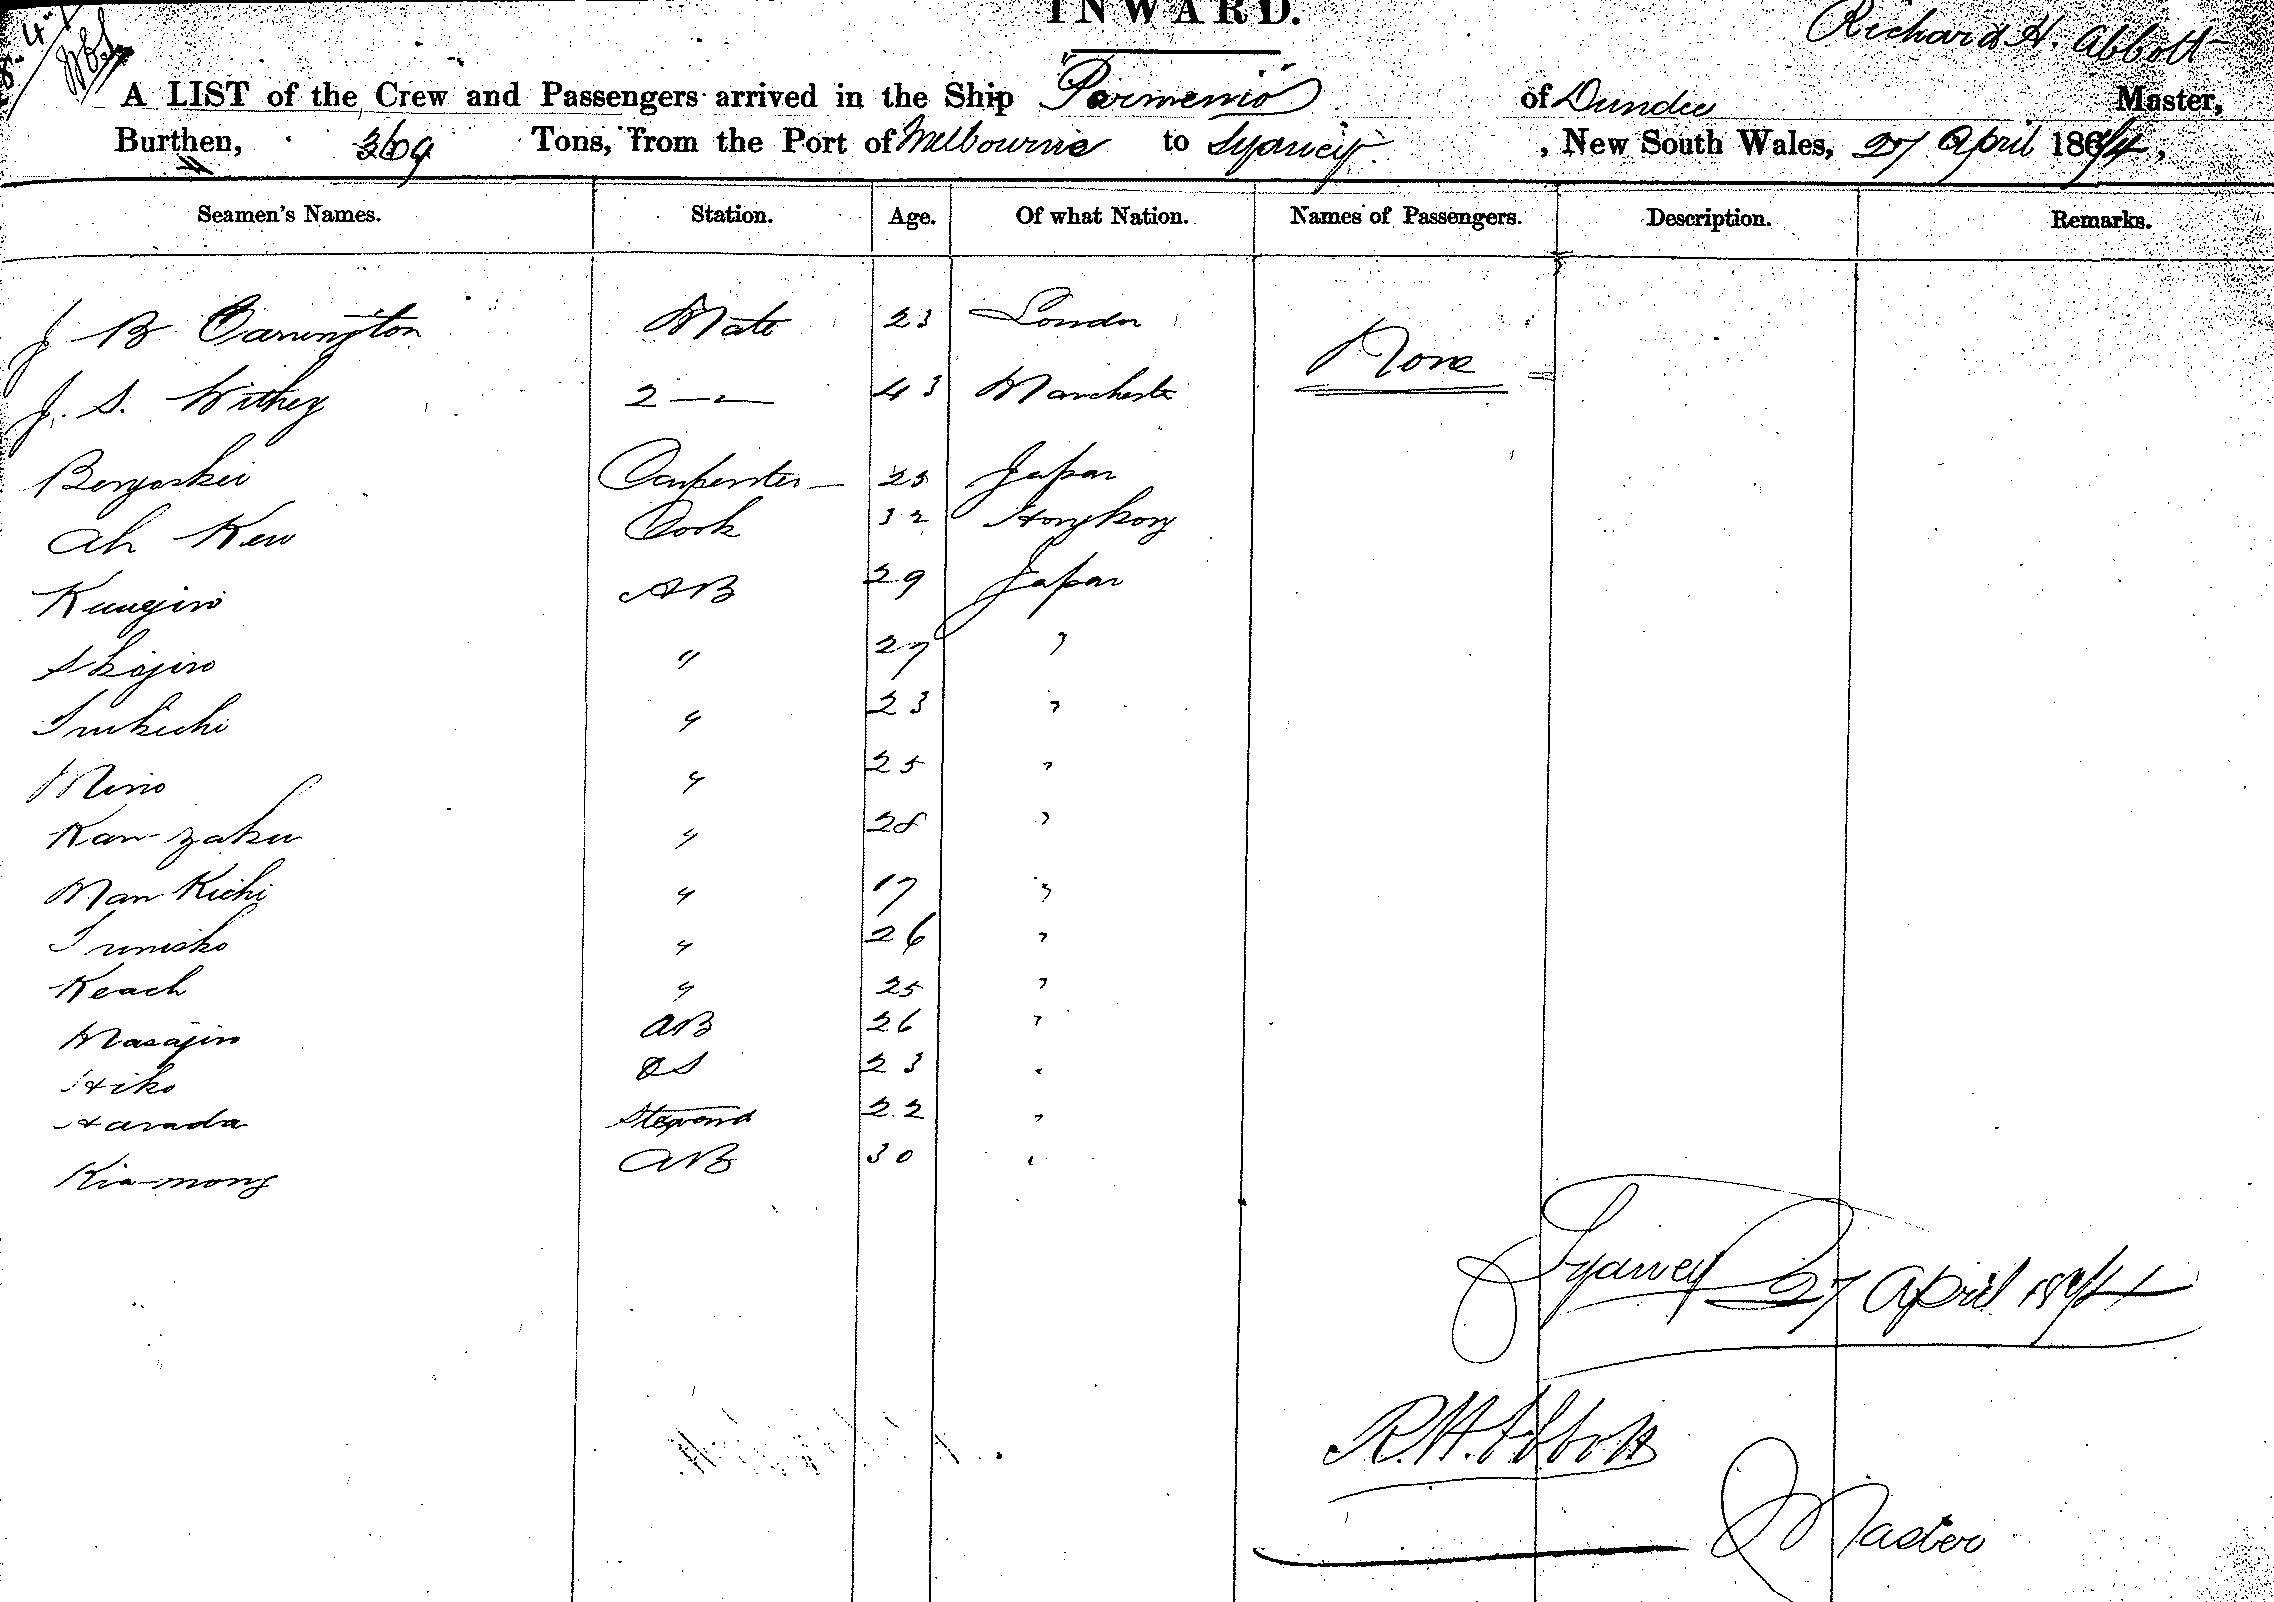 INWARD.
Richard H. Abbott
A LIST of the Crew and Passengers arrived in the Ship Parmenio of Dundee Master,
Burthen, 369 Tons, from the Port of Melbourne to Sydney, New South Wales, 27 April 1894,
Seamen's Names. Station. Age. Of what Nation. Names of Passengers. Description. Remarks.
J B Carrington Mate 23 London
None
J. S. Withey 2 — 43 Manchester
Carpenter 25 Japan
Ah Kew Cook 32 Hongkong
AB 29 Japan
Skajiro " 27 "
" 23 "
Mino " 25 "
Kan zaku " 28 "
Man Kichi " 17 "
" 26 "
Keach " 25 "
Masajiro AB 26 "
Hiko OS 23 "
Harada Steward 22 "
Kia-mong AB 30 "
Sydney 27 April 1894
R.H. Abbott
Master